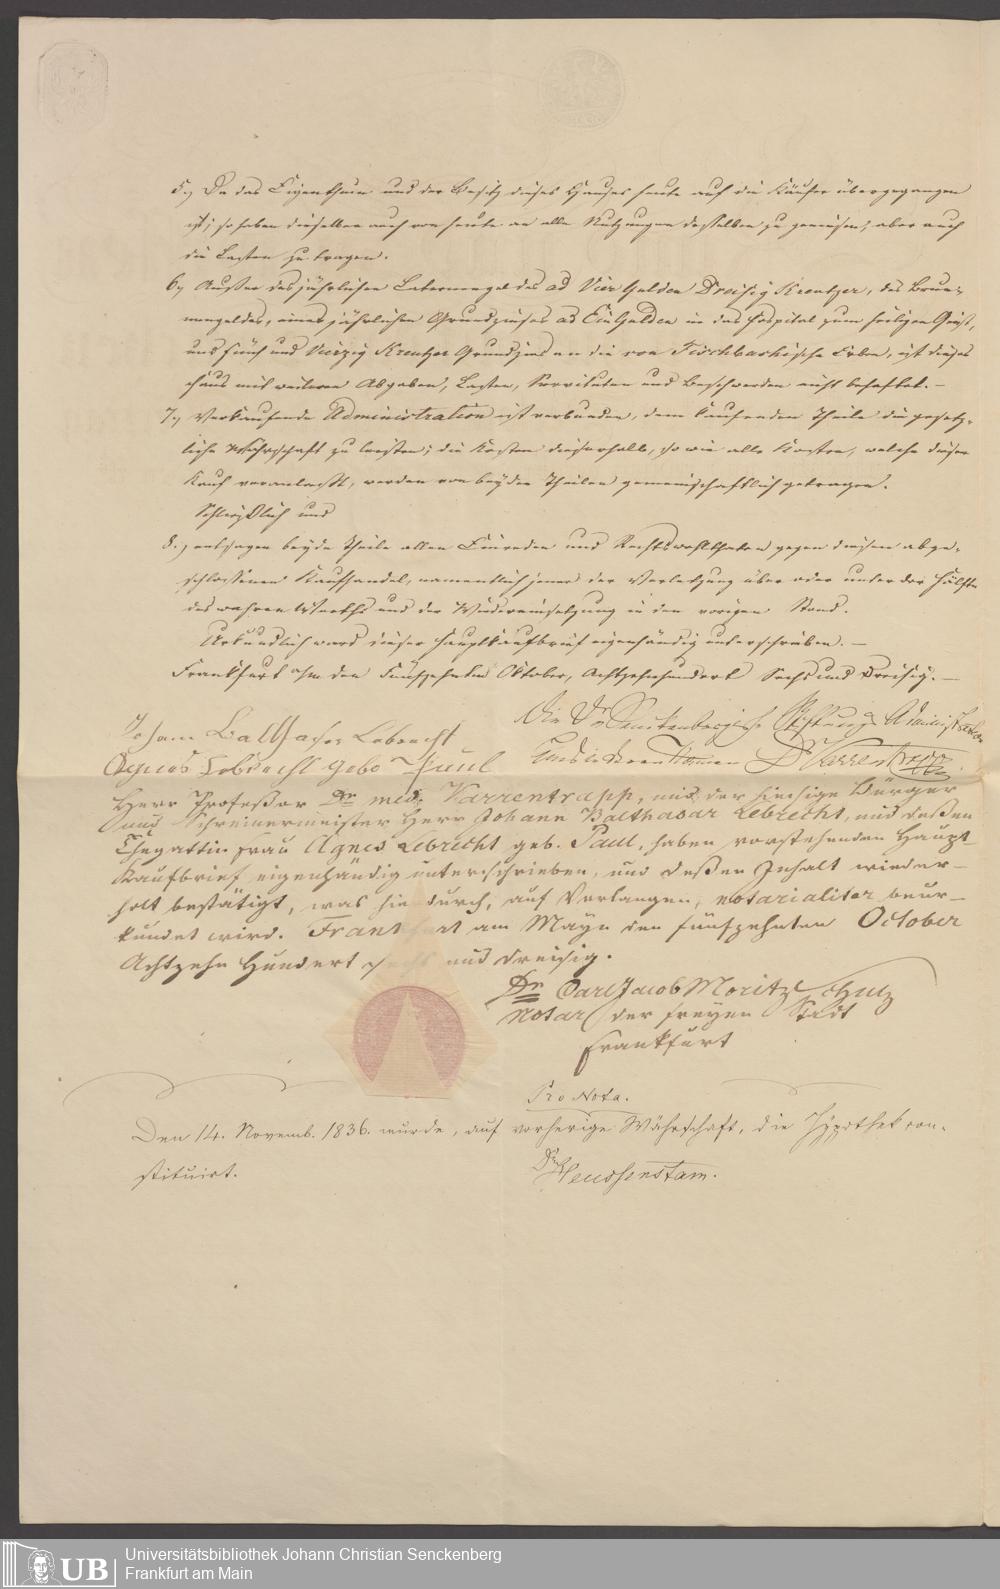 5.) Da das Eigenthum und der Besitz dieses Hauses heute auf die Käufer übergegangen
ist; so haben dieselben auch von heute an alle Nutzungen desselben zu genießen, aber auch
die Lasten zu tragen.
6.) Außer des jährlichen Laternengeldes ad Vier Gulden Dreißig Kreutzer, des Brun-
nengeldes, eines jährlichen Grundzinses ad Ein Gulden in das Hospital zum heiligen Geist,
und fünf und Vierzig Kreutzer Grundzins an die von Fischbachische Erben, ist dieses
Haus mit weiteren Abgaben, Lasten, Servituten und Beschwerden nicht behaftet. –
7.) Verkaufende Administration ist verbunden, dem kaufenden Theile die gesetz-
liche Währschaft zu leisten; die Kosten dieserhalb, so wie alle Kosten, welche dieser
Kauf veranlaßt, werden von beyden Theilen gemeinschaftlich getragen.
Schließlich und
8.) entsagen beyde Theile allen Einreden und Rechtswohlthaten gegen diesen abge-
schlossenen Kaufhandel, namentlich jener der Verletzung über oder unter der Hälfte
des wahren Werths und der Wiedereinsetzung in den vorigen Stand.
Urkundlich ward dieser Hauptkaufbrief eigenhändig unterschrieben. –
Frankfurt a/m den Fünfzehnten Oktober, Achtzehnhundert Sechs und Dreißig. –
Die Dr Senckenbergische Stiftungs Administration
Johann Balthasar Lebrecht
Agnes Lebrecht gebo Paul
Dr Varrentrapp
Herr Professor Dr med. Varrentrapp, und der hiesige Bürger
und Schreinermeister Herr Johann Balthasar Lebrecht, und deßen
Ehegattin Frau Agnes Lebrecht geb. Paul, haben vorstehenden Haupt-
Kaufbrief eigenhändig unterschrieben, und deßen Inhalt wieder-
holt bestätigt, was hiedurch, auf Verlangen, notarialiter beur-
kundet wird. Frankfurt am Mayn den fünfzehnten October
Achtzehn Hundert sechs und dreißig.
Dr Carl Jacob Moritz Schulz
Notar der freyen Stadt
Frankfurt
Pro Nota.
Den 14. Novemb. 1836. wurde, auf vorherige Währschaft, die Hypothek con-
stituirt.
Dr Heussenstam.
UB
Universitätsbibliothek Johann Christian Senckenberg
Frankfurt am Main